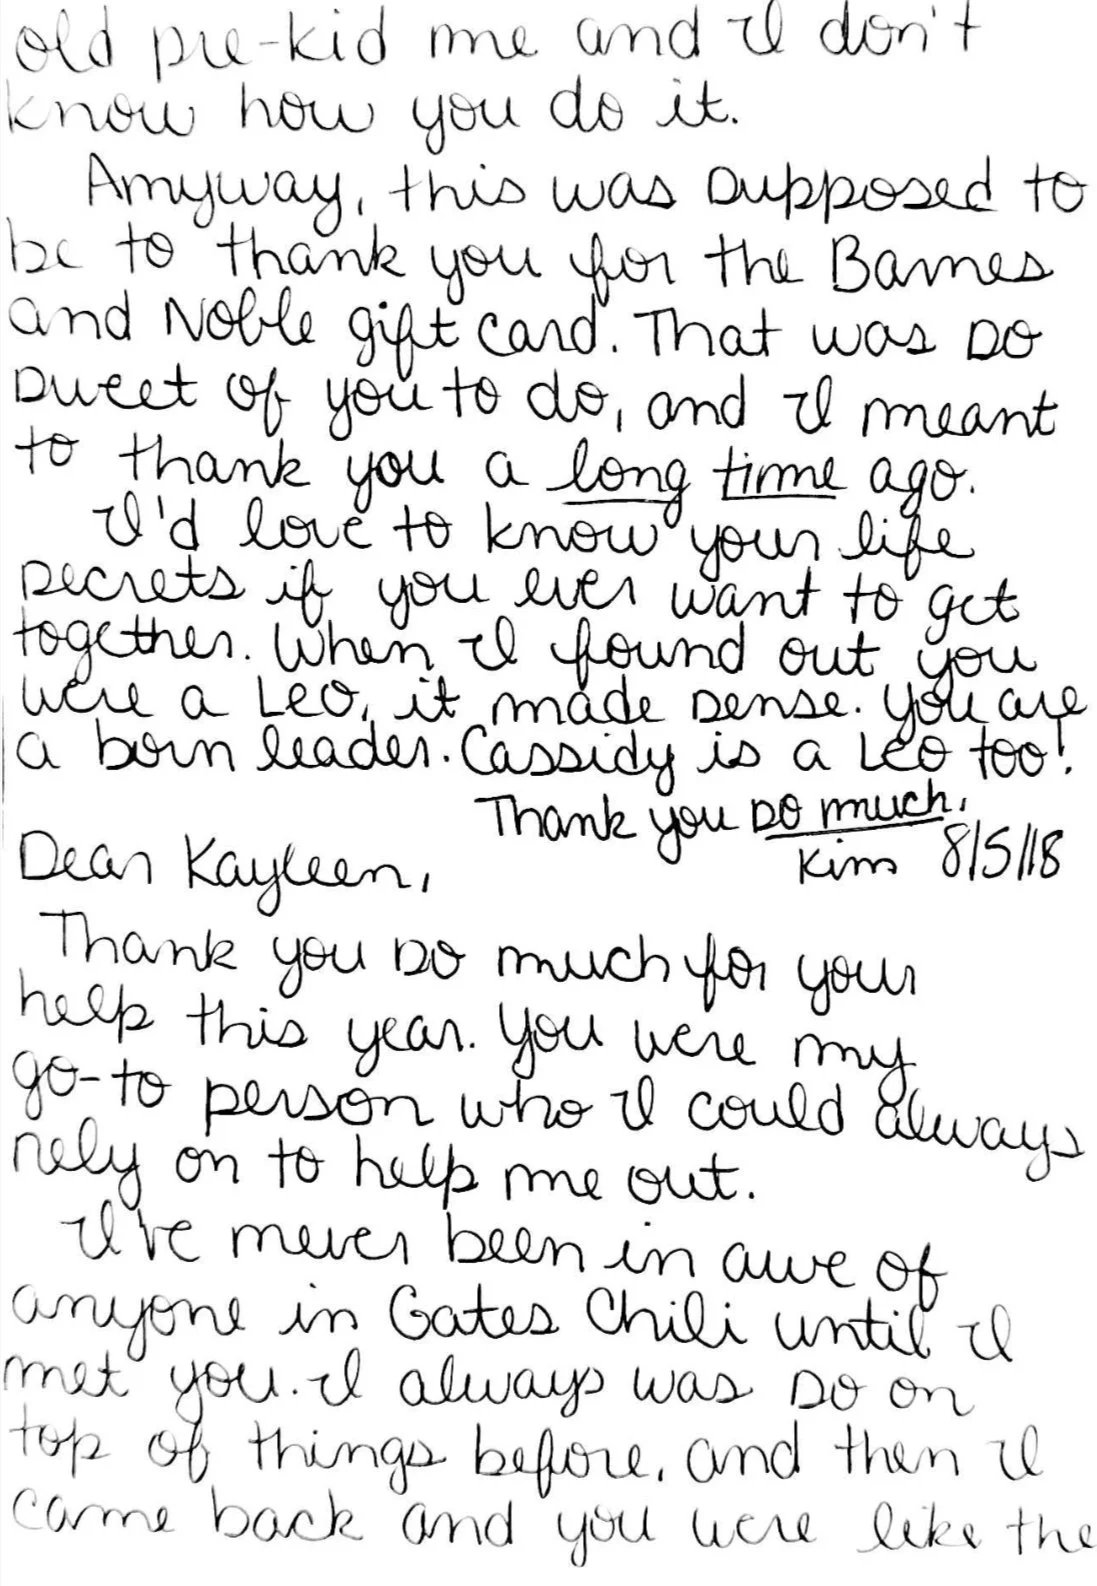 old pre-kid me and I don't
know how you do it.
Anyway, this was supposed to
be to thank you for the Barnes
and Noble gift card. That was so
sweet of you to do, and I meant
to thank you a long time ago.
I'd love to know your life
secrets if you ever want to get
together. When I found out you
were a Leo, it made sense. You are
a born leader. Cassidy is a Leo too!
Thank you so much,
Kim 8/5/18
Dear Kayleen,
Thank you so much for your
help this year. You were my
go-to person who I could always
rely on to help me out.
I've never been in awe of
anyone in Gates Chili until I
met you. I always was so on
top of things before, and then I
came back and you were like the